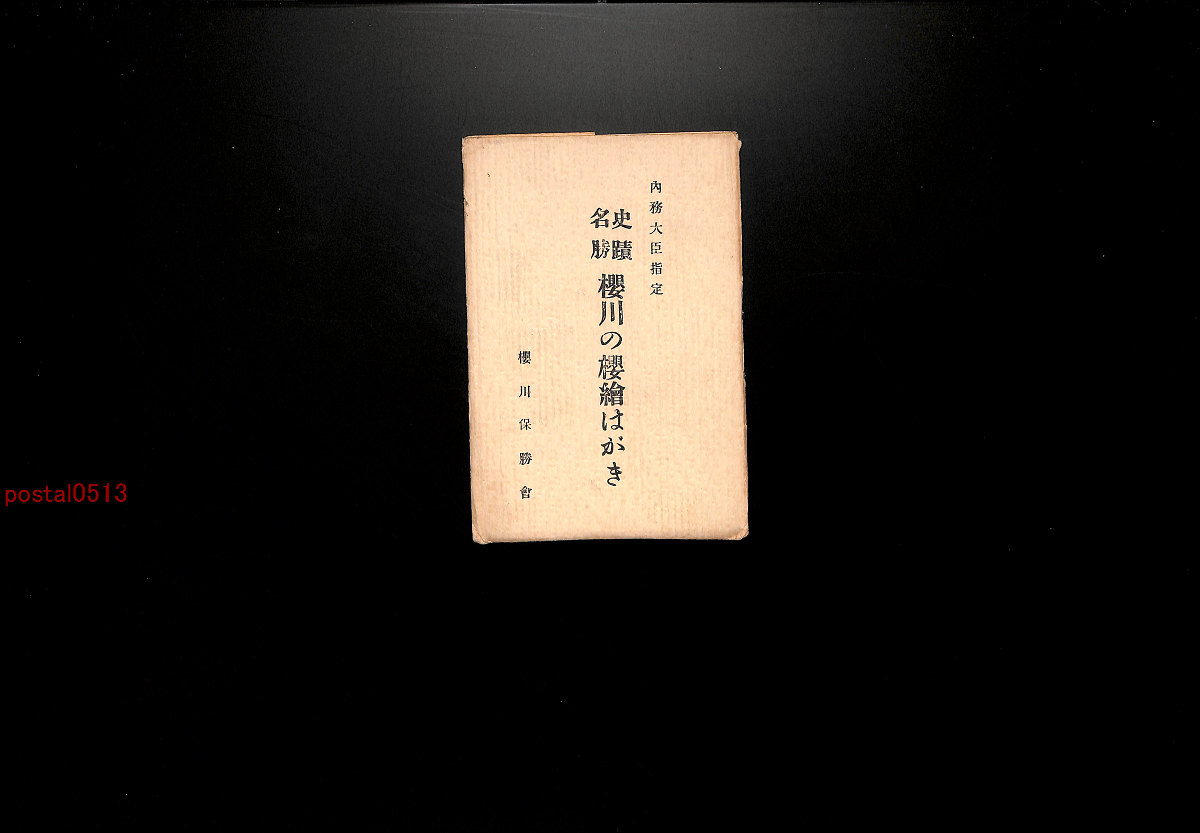 內務大臣指定
史蹟
名勝
櫻川の櫻繪はがき
櫻川保勝會
postal0513